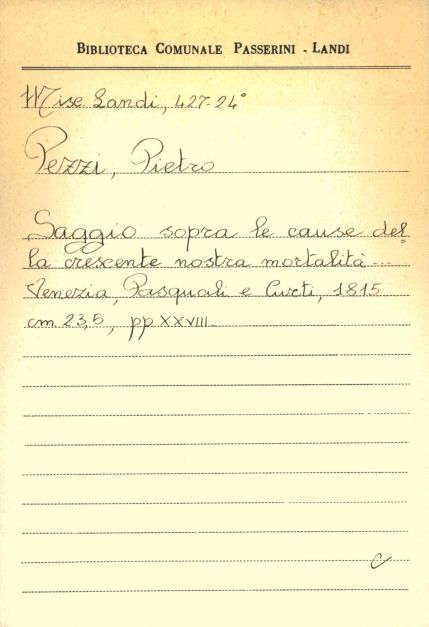 BIBLIOTECA COMUNALE PASSERINI - LANDI
Misc Landi, 427-24°
Pezzi, Pietro
Saggio sopra le cause del=
la crescente nostra mortalità ...
Venezia, Pasquali e Curti, 1815
cm 23,5, pp XXVIII
C